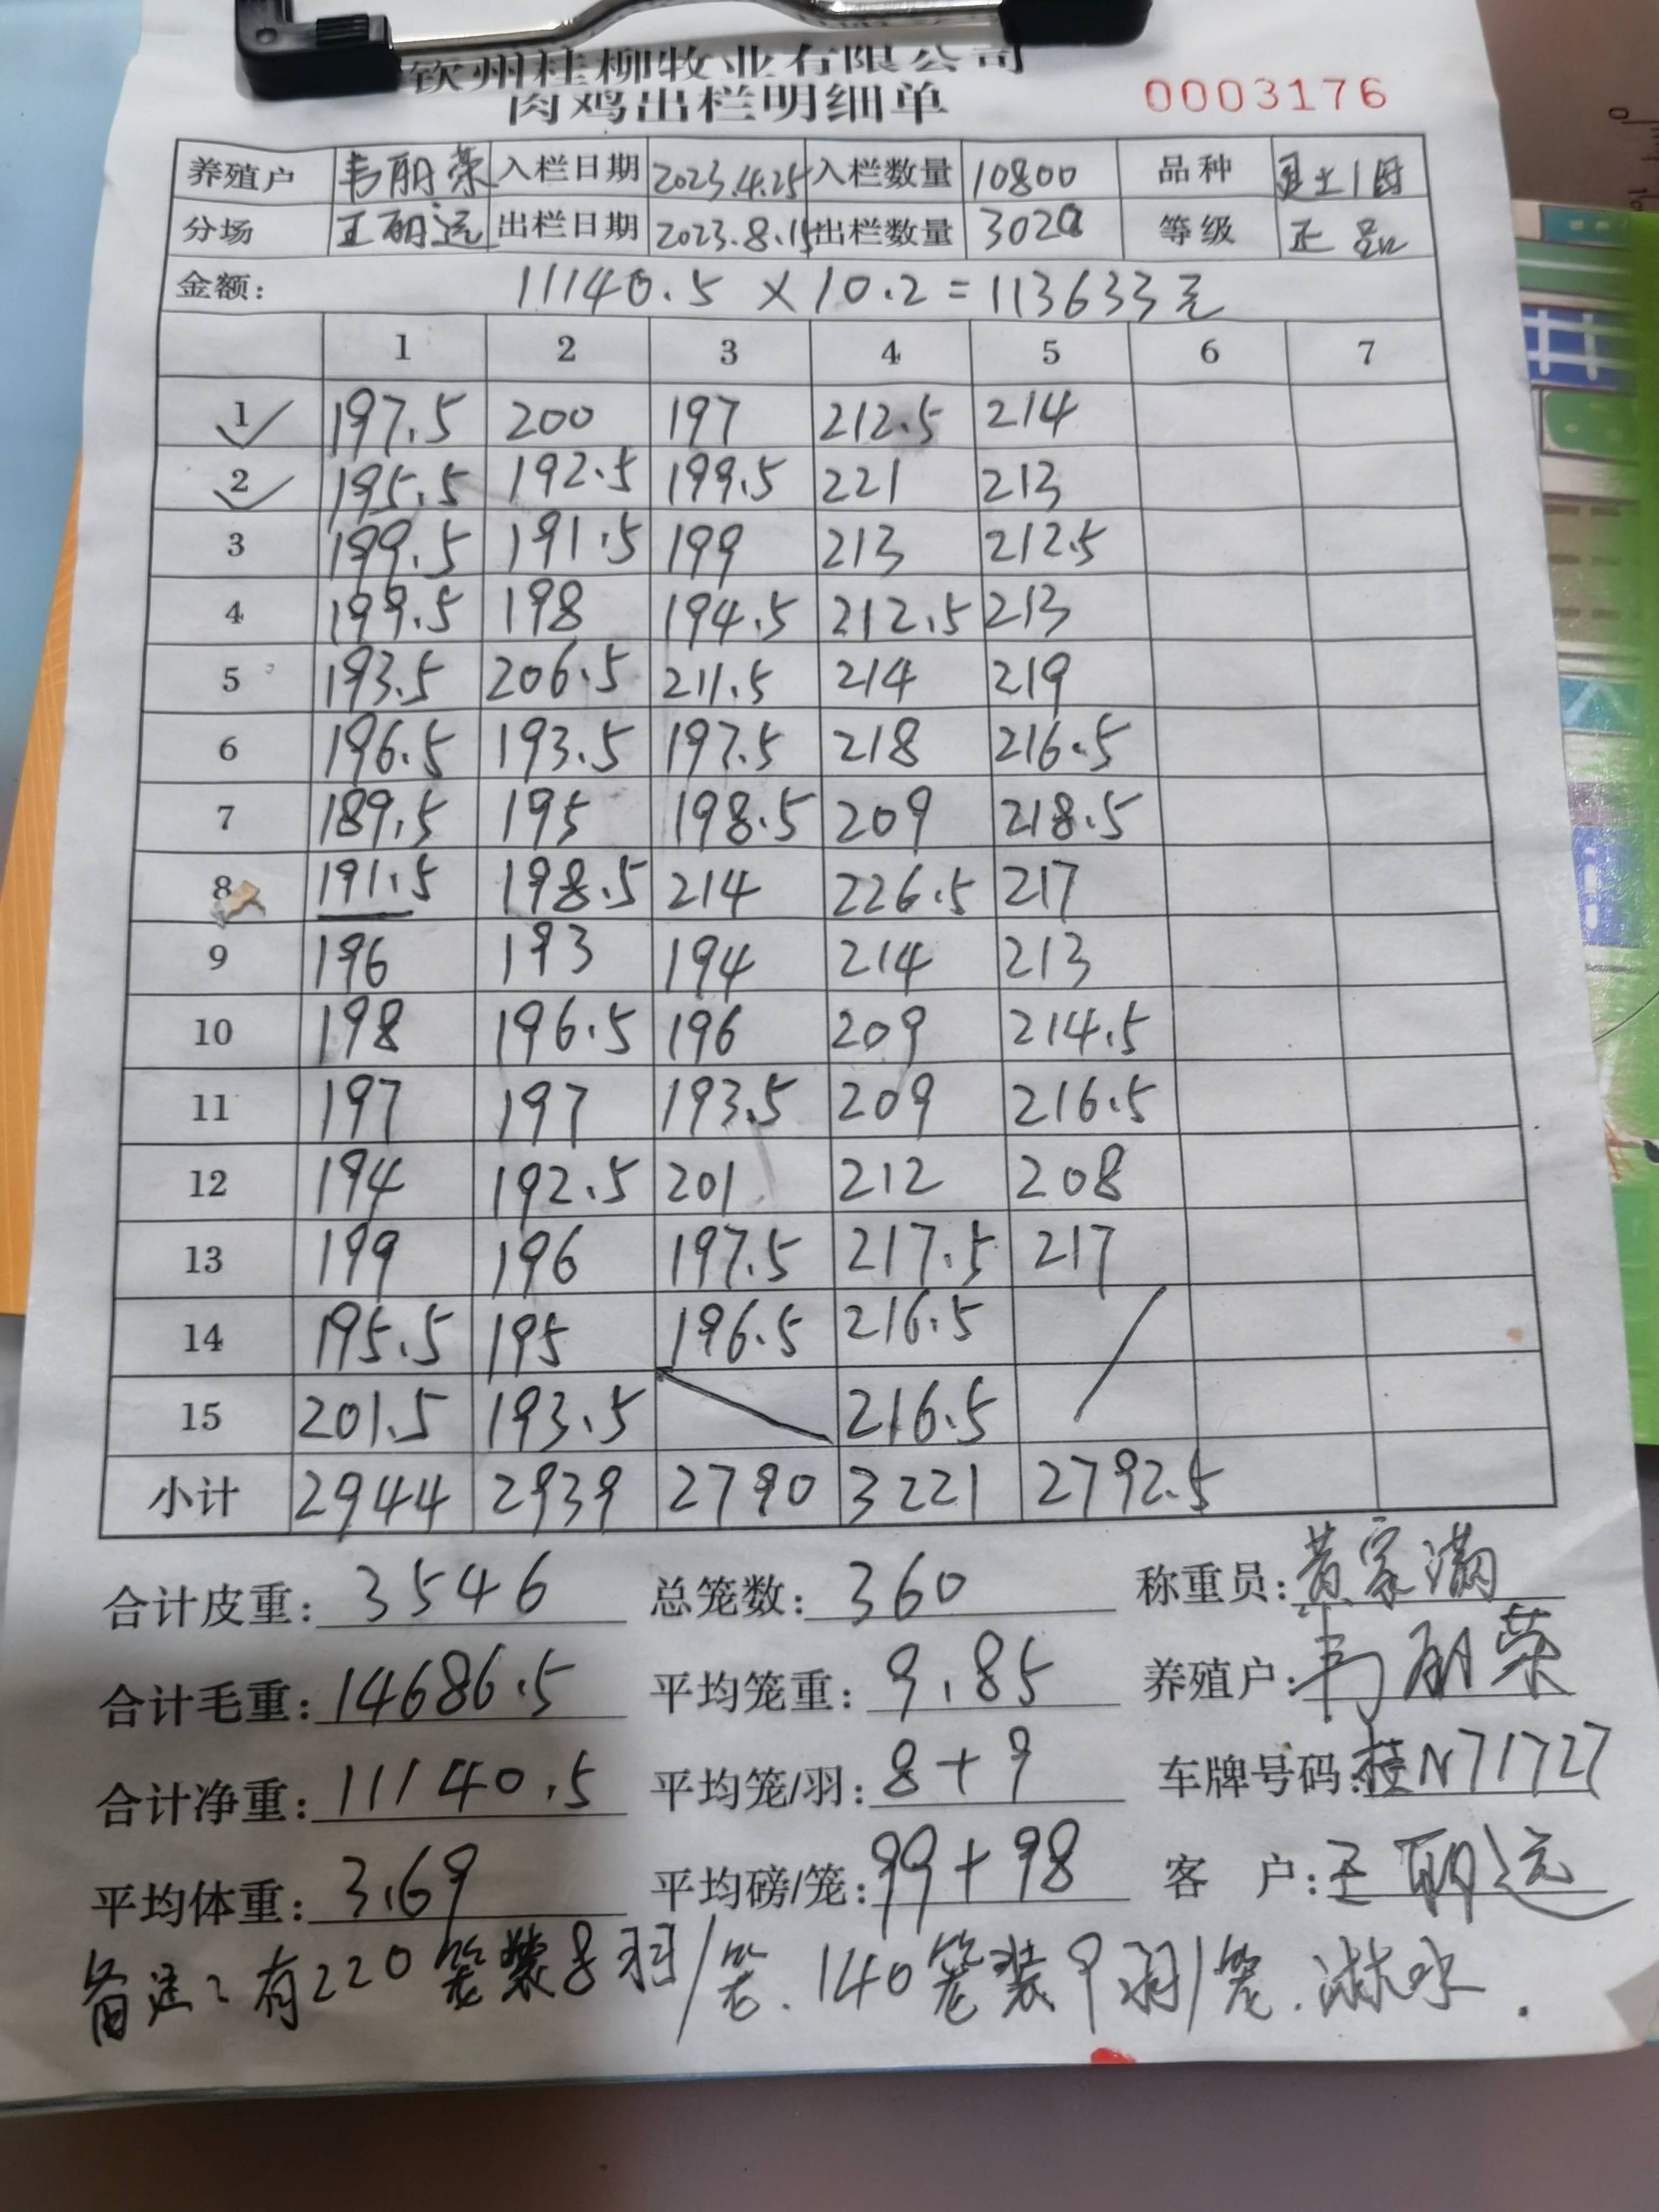 钦州桂柳牧业有限公司
肉鸡出栏明细单 0003176
养殖户 韦丽荣 入栏日期 2023.4.25 入栏数量 10800 品种
分场 王丽远 出栏日期 2023.8.15 出栏数量 3020 等级 正品
金额: 11140.5 × 10.2 = 113633元
1 2 3 4 5 6 7
1 197.5 200 197 212.5 214
2 195.5 192.5 199.5 221 213
3 199.5 191.5 199 213 212.5
4 199.5 198 194.5 212.5 213
5 193.5 206.5 211.5 214 219
6 196.5 193.5 197.5 218 216.5
7 189.5 195 198.5 209 218.5
8 191.5 198.5 214 226.5 217
9 196 193 194 214 213
10 198 196.5 196 209 214.5
11 197 197 193.5 209 216.5
12 194 192.5 201 212 208
13 199 196 197.5 217.5 217
14 195.5 195 196.5 216.5
15 201.5 193.5 216.5
小计 2944 2939 2790 3221 2792.5
合计皮重: 3546 总笼数: 360 称重员: 黄家满
合计毛重: 14686.5 平均笼重: 9.85 养殖户: 韦丽荣
合计净重: 11140.5 平均笼/羽: 8+9 车牌号码: 桂N71727
平均体重: 3.69 平均磅/笼: 99+98 客户: 王丽远
备注: 有220笼装8羽/笼.140笼装9羽/笼.淋水.